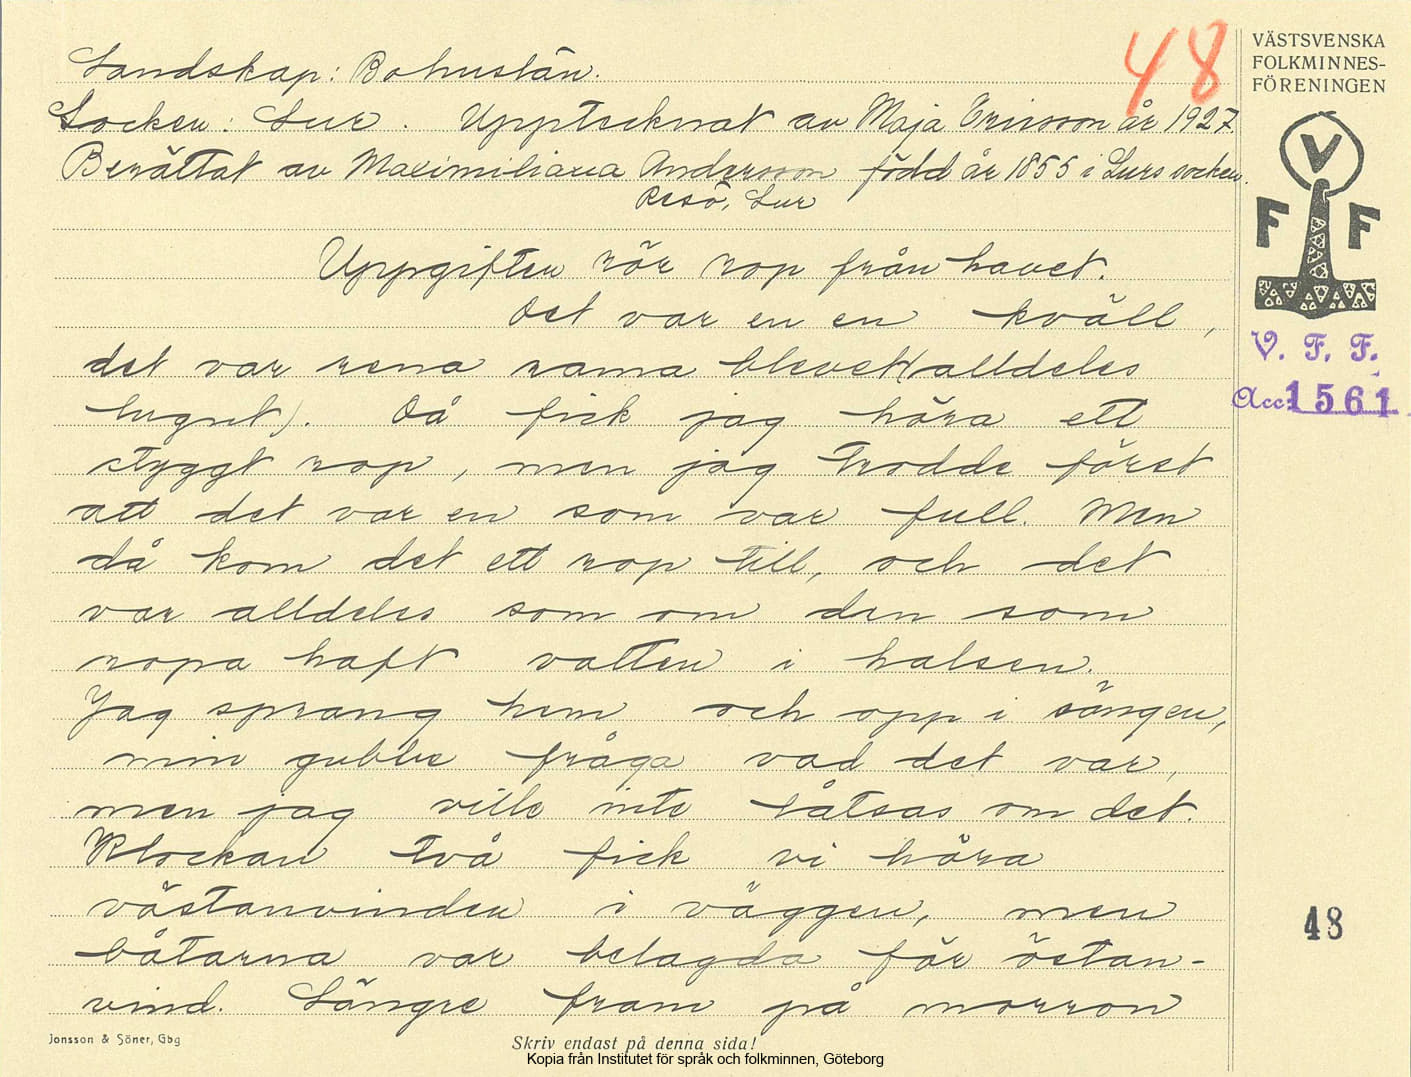 48
VÄSTSVENSKA
FOLKMINNES-
FÖRENINGEN
V
F F
V. F. F.
Acc: 1561
Landskap: Bohuslän.
Socken: Lur. Upptecknat av Maja Ericsson år 1927
Berättat av Maximiliana Andersson född år 1855 i Lurs socken.
Resö, Lur
Uppgiften rör rop från havet.
Det var en en kväll,
det var rena rama blevet (alldeles
lugnt). Då fick jag höra ett
styggt rop, men jag trodde först
att det var en som var full. Men
då kom det ett rop till, och det
var alldeles som om den som
ropa haft vatten i halsen.
Jag sprang hem och opp i sängen,
min gubbe fråga vad det var,
men jag ville inte låtsas om det.
Klockan två fick vi höra
västanvinden i väggen, men
båtarna var belagda för östan-
vind. Längre fram på morron
48
Jonsson & Söner, Gbg
Skriv endast på denna sida!
Kopia från Institutet för språk och folkminnen, Göteborg